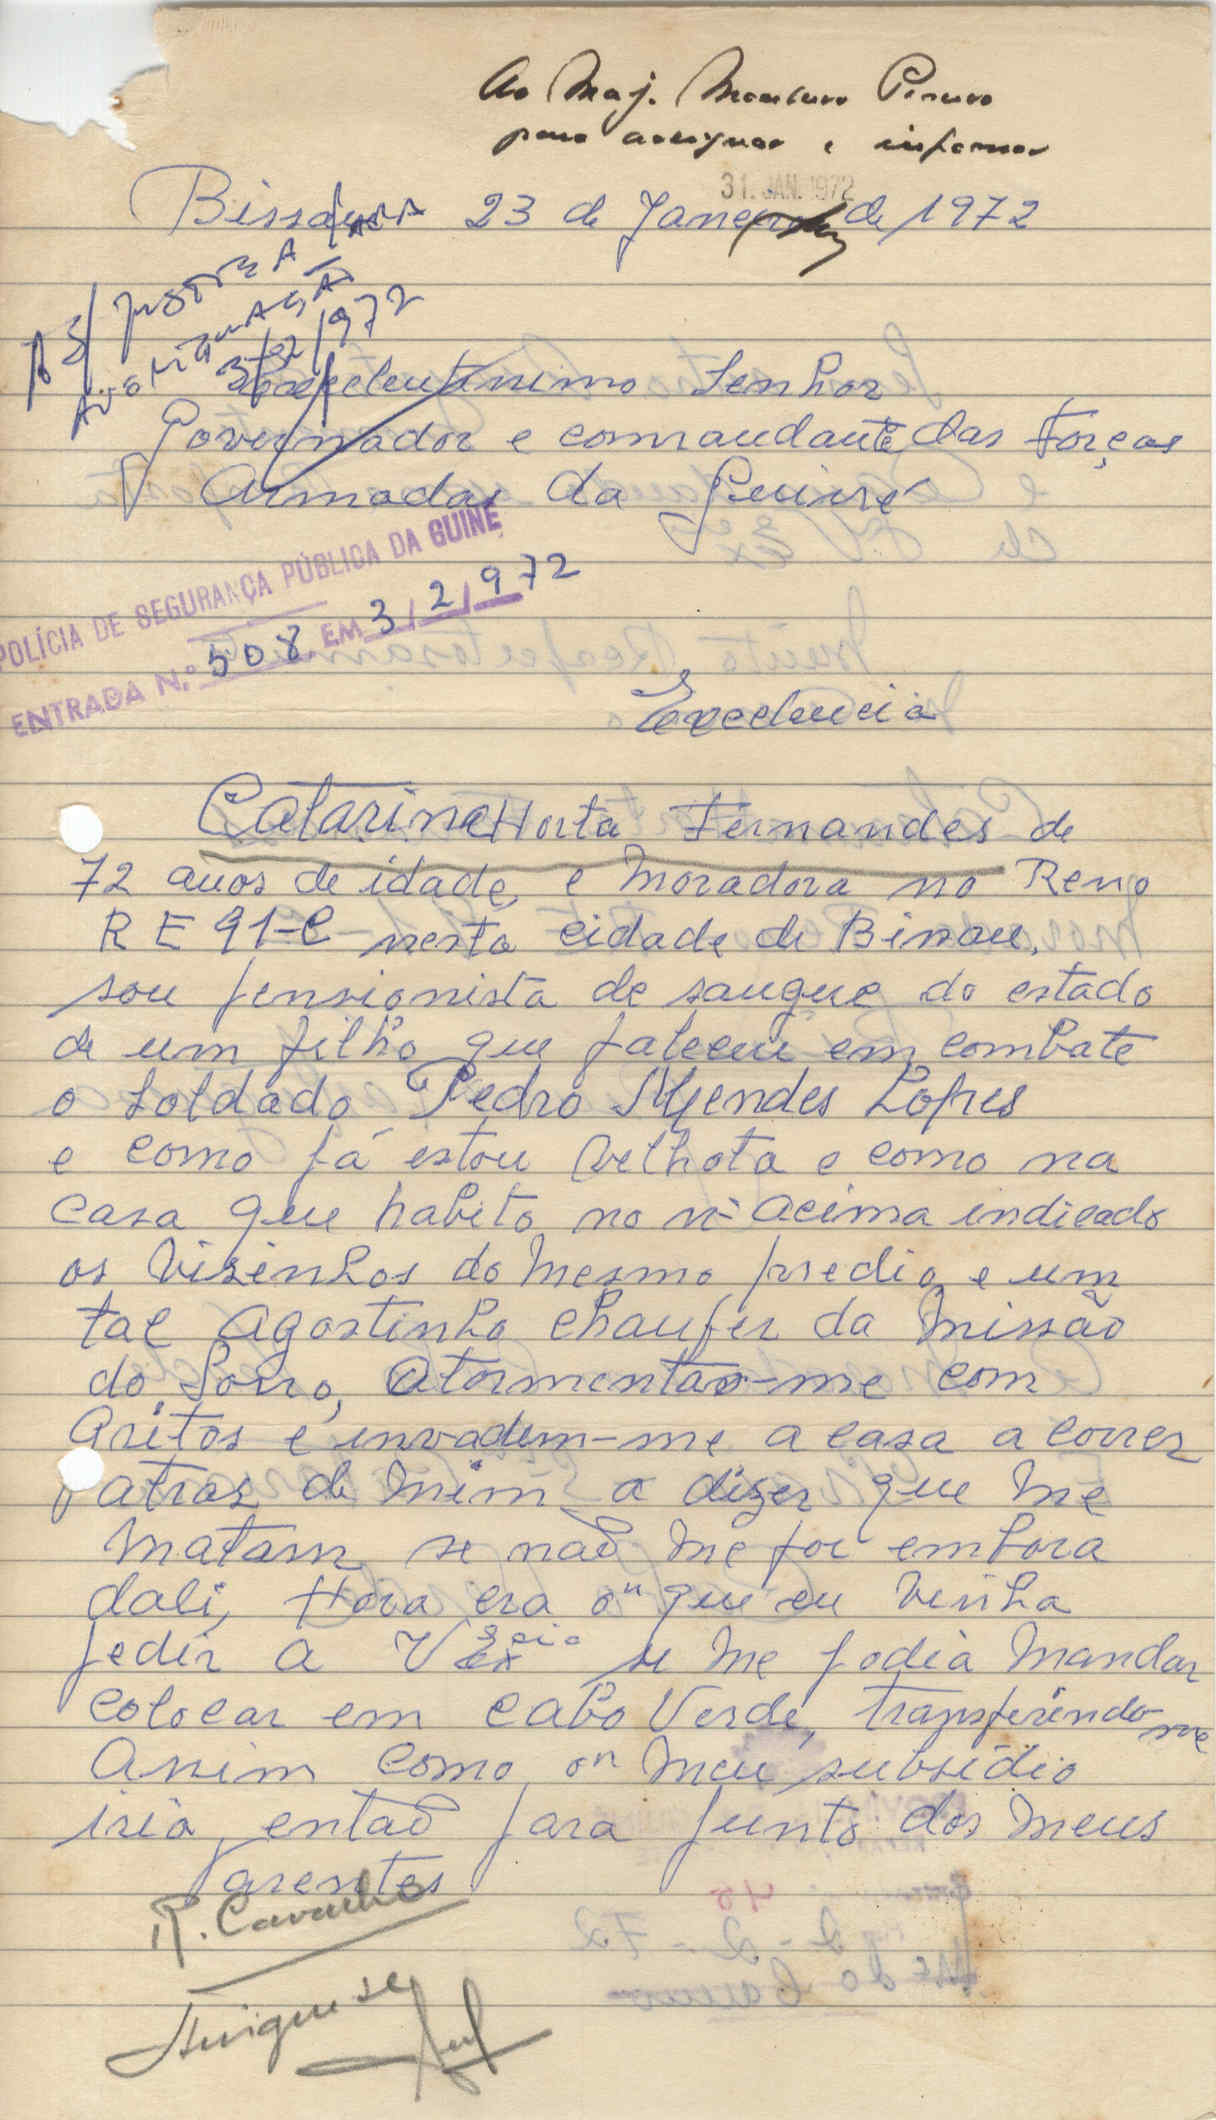 Ao Maj. Monteiro
para averiguar e informar
31. JAN. 1972
Bissau 23 de Janeiro de 1972
À S/ JUSTIÇA PARA
AVERIGUAÇÃO
3/2/1972
Excelentissimo Senhor
Governador e comandante das Forças
Armadas da Guiné
POLÍCIA DE SEGURANÇA PÚBLICA DA GUINÉ
ENTRADA N.º 508 EM 3/2/972
Excelencia
Catarina Horta Fernandes de
72 anos de idade, e moradora no Reno
R E 91-C nesta cidade de Bissau.
sou pensionista de sangue do estado
de um filho que faleceu em combate
o soldado Pedro Mendes Lopes
e como já estou velhota e como na
casa que habito no nº acima indicado
os visinhos do mesmo predio e um
tal Agostinho chaufer da Missão
do Sono, atormentão-me com
gritos e invadem-me a casa a correr
atraz de mim a dizer que me
matam se não me for embora
dali, Hora era o que eu vinha
pedir a V Excia se me podia mandar
colocar em Cabo Verde, transferindo-me
assim como o meu subsidio
iria então para junto dos meus
parentes
R. Carvalho
Averigue-se